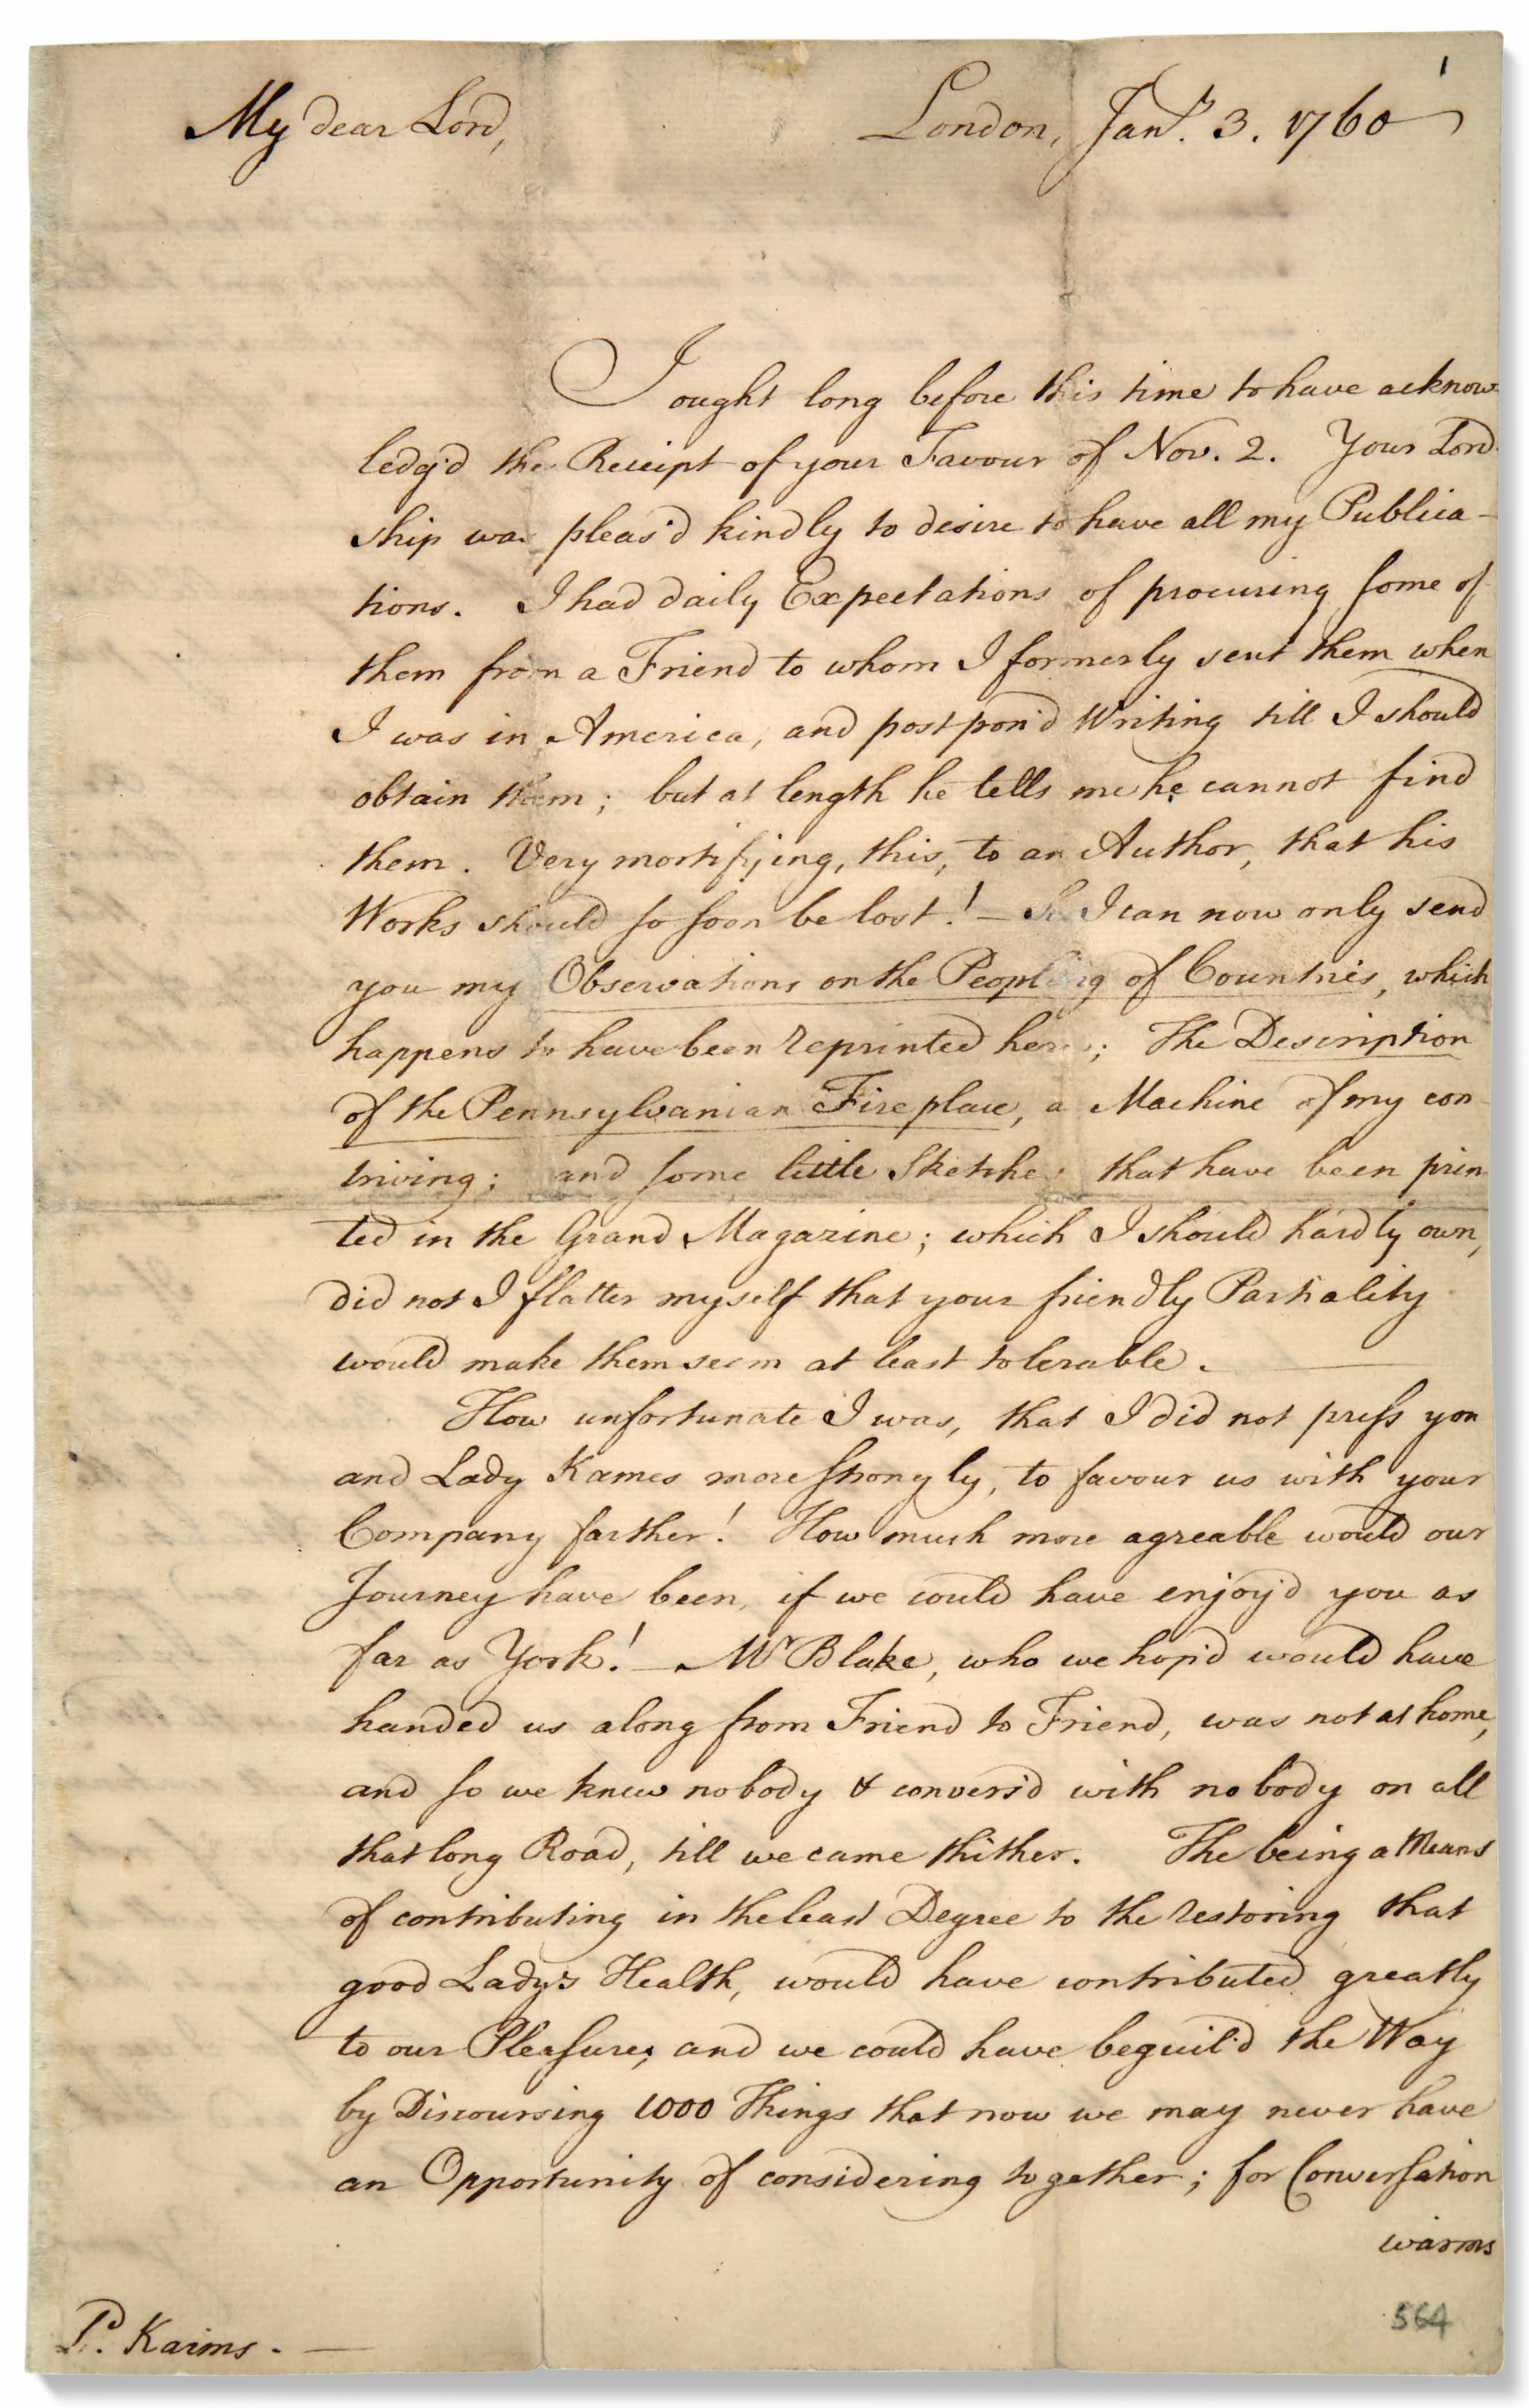 1
My dear Lord, London, Jany. 3. 1760
I ought long before this time to have acknow-
ledg'd the Receipt of your Favour of Nov. 2. Your Lord-
ship was pleas'd kindly to desire to have all my Publica-
tions. I had daily Expectations of procuring some of
them from a Friend to whom I formerly sent them when
I was in America, and postpon'd Writing till I should
obtain them; but at length he tells me he cannot find
them. Very mortifying, this, to an Author, that his
Works should so soon be lost! — So I can now only send
you my Observations on the Peopling of Countries, which
happens to have been reprinted here; The Description
of the Pennsylvanian Fireplace, a Machine of my con-
triving; and some little Sketches that have been prin-
ted in the Grand Magazine; which I should hardly own,
did not I flatter myself that your friendly Partiality
would make them seem at least tolerable. —
How unfortunate I was, that I did not press you
and Lady Kames more strongly, to favour us with your
Company farther! How much more agreable would our
Journey have been, if we could have enjoy'd you as
far as York! — Mr Blake, who we hop'd would have
handed us along from Friend to Friend, was not at home,
and so we knew nobody & convers'd with nobody on all
that long Road, till we came thither. The being a Means
of contributing in the least Degree to the restoring that
good Lady's Health, would have contributed greatly
to our Pleasures, and we could have beguil'd the Way
by Discoursing 1000 Things that now we may never have
an Opportunity of considering together; for Conversation
warms
564
Kaims. —